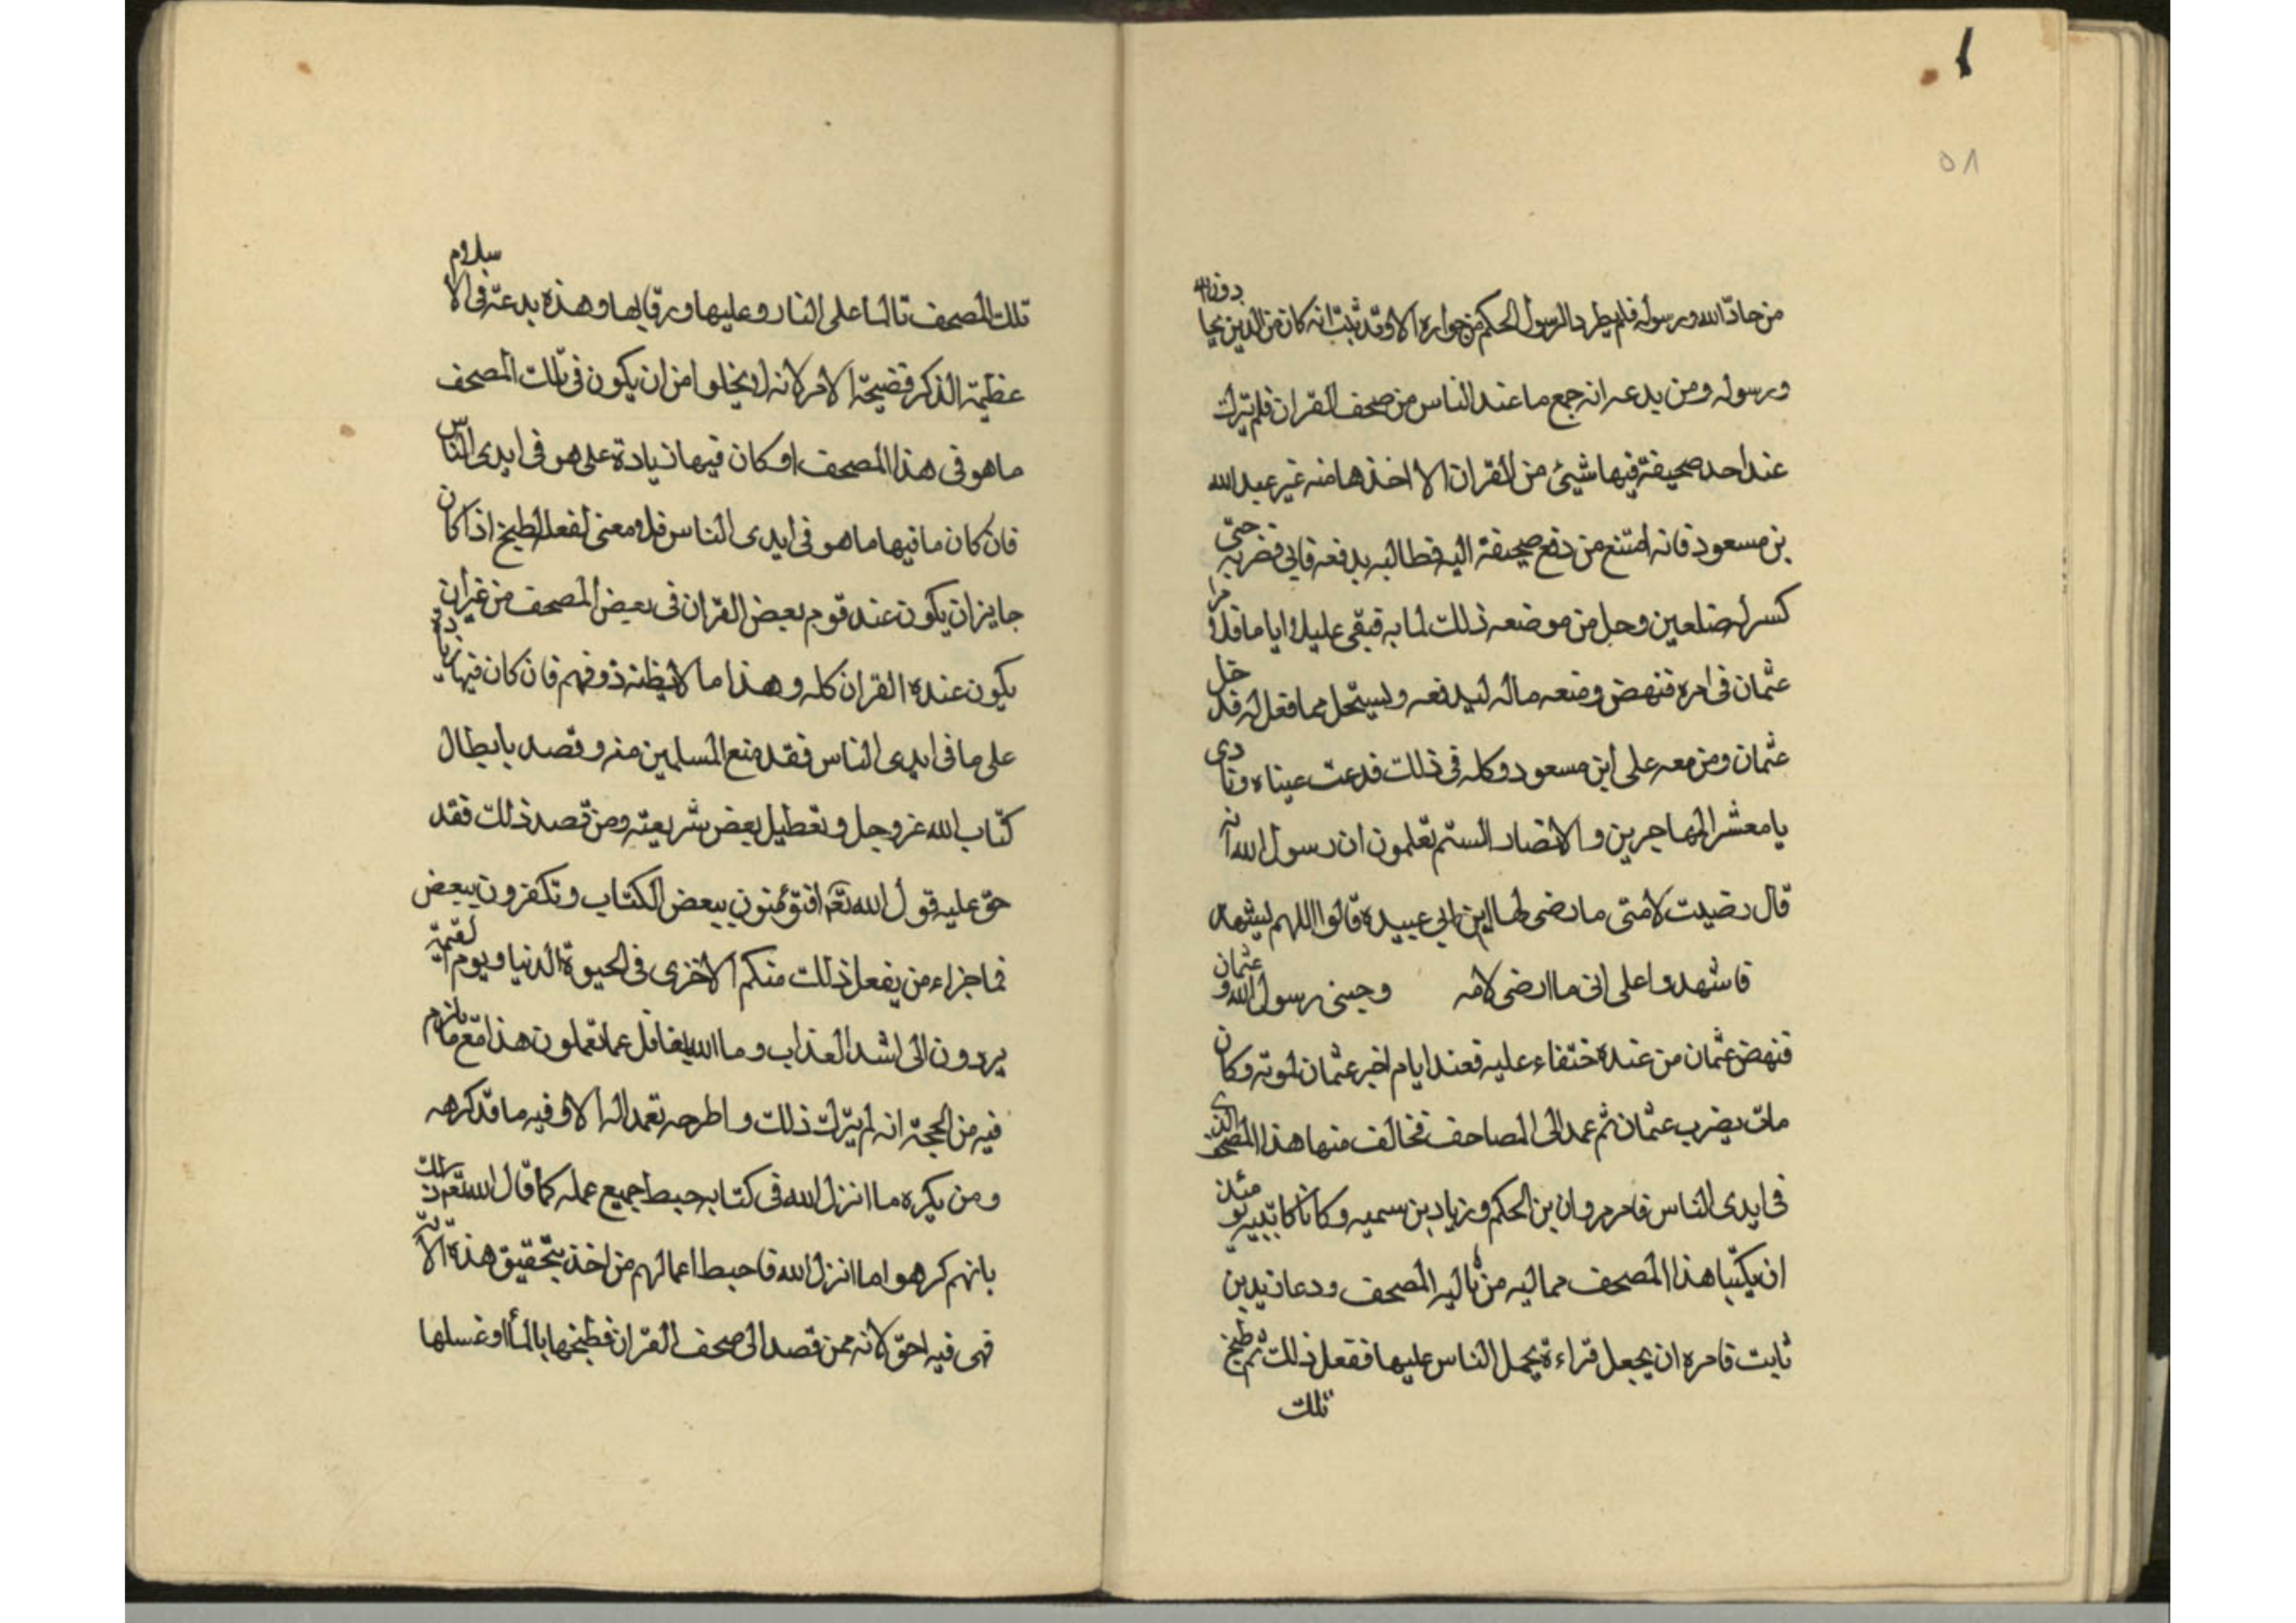 ٥٨
من حادّ الله ورسوله فلم يطرد الرسول الحكم من جواره الا وقد ثبت انه كان من الذين يحادون الله
ورسوله ومن بدعه انه جمع ما عند الناس من صحف القران فلم يترك
عند احد صحيفة فيها شيئ من القران الا اخذها منه غير عبد الله
بن مسعود فانه امتنع من دفع صحيفة اليه فطالبه بدفعه فابى فضربه حتى
كسر له ضلعين وحمل من موضعه ذلك لما به فبقى عليلا اياما فلا
عثمان فى امره فنهض ومعه ماله ليدفعه وليستحل مما فعل له فدخل
عثمان ومن معه على ابن مسعود وكله فى ذلك فدعت عيناه ونادى
يا معشر المهاجرين والانصار الستم تعلمون ان رسول الله انه
قال رضيت لامتى ما رضى لها ابن ابى عبيده قالوا اللهم ليشهد
فاشهدوا على انى ما ارضى لامه وجبنى رسول الله و عثمان
فنهض عثمان من عنده ختفاء عليه فعند ايام اخبر عثمان لموته وكان
مات بضرب عثمان ثم عمد الى المصاحف فخالف منها هذا المصحف الذى
فى ايدى الناس فامر مروان بن الحكم وزياد بن سميه وكانا كاتبيه يومئذ
ان يكتبا هذا المصحف مما ليه من المصحف ودعا زيد بن
ثابت فامره ان يجعل قراءة يحمل الناس عليها ففعل ذلك ثم طبخ
تلك
تلك المصحف تالما على النار وعليها ورقابها وهذه بدعة فى الاسلام
عظيمة الذكر فضيحة الامر لانه لا يخلوا من ان يكون فى تلك المصحف
ما هو فى هذا المصحف او كان فيها زيادة على هو فى ايدى الناس
فان كان ما فيها ما هو فى ايدى الناس فلا معنى لفعل الطبخ اذا كان
جايز ان يكون عند قوم بعض القران فى بعض المصحف من غير ان
يكون عنده القران كله وهذا ما لا يظنه ذو فهم فان كان فيها زيادة
على ما فى ايدى الناس فقد منع المسلمين منه وقصد بابطال
كتاب الله عز وجل وتعطيل بعض شريعته ومن قصد ذلك فقد
حق عليه قول الله تعم افتؤمنون ببعض الكتاب وتكفرون ببعض
فما جزاء من يفعل ذلك منكم الا خزى فى الحيوة الدنيا ويوم القيمة
يردون الى اشد العذاب وما الله بغافل عما تعملون هذا مع ما يلزم
فيه من الحجة انه لم يترك ذلك واطرحه تعمدا له الا وفيه ما قد كرهه
ومن يكره ما انزل الله فى كتابه حبط جميع عمله كما قال الله تعم ذلك
بانهم كرهوا ما انزل الله فاحبط اعمالهم من اخذ بتحقيق هذه الاية
فهى فيه احق لانه ممن قصد الى صحف القران فطبخها بالماء او غسلها